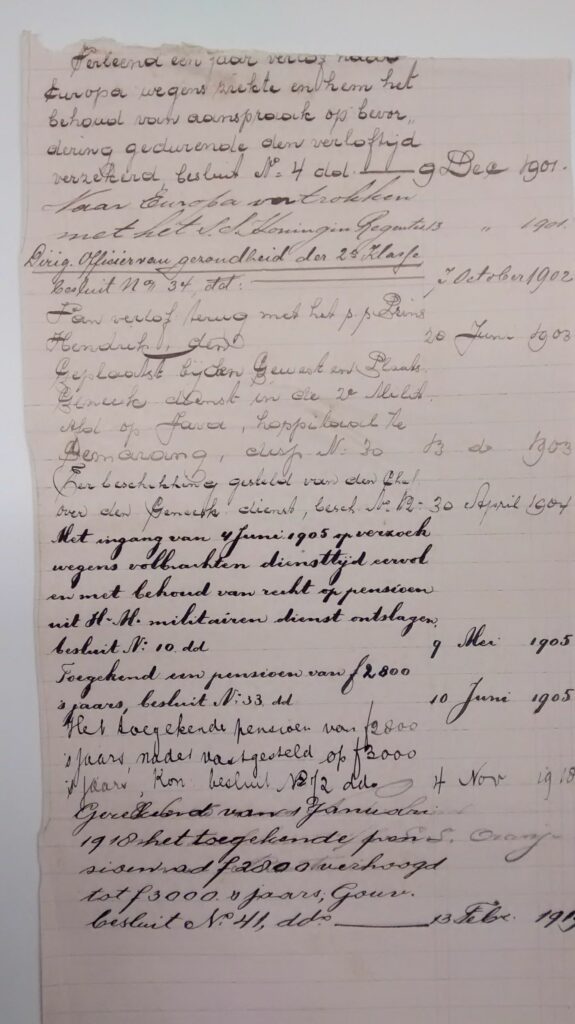 Verleend een jaar verlof naar
Europa wegens ziekte en hem het
behoud van aanspraak op bevor„
dering gedurende den verloftijd
verzekerd, besluit No= 4 dd. 9 Dec 1901.
Naar Europa vertrokken
met het S.S. Koningin Regentes 13 " 1901.
Dirig. Officier van gezondheid der 2e Klasse
besluit No 34, dd: 7 October 1902
Van verlof terug met het p.p. Prins
Hendrik, den 20 Juni 1903
Geplaatst bij den Gewest en Plaats.
Geneesk dienst in de 2e Milit.
Afd op Java, hospitaal te
Semarang, disp N: 30 13 do 1903
Ter beschikking gesteld van den Chef
over den Geneesk dienst, besch. No 12- 30 April 1904
Met ingang van 4 Juni 1905 op verzoek
wegens volbrachten diensttijd eervol
en met behoud van recht op pensioen
uit H. M. militairen dienst ontslagen,
besluit No: 10 dd 9 Mei 1905
Toegekend een pensioen van f 2800
's jaars, besluit No: 33 dd 10 Juni 1905
Het toegekende pensioen van f 2800
's jaars, nader vastgesteld op f 3000
's jaars, Kon besluit No 72 ddo 4 Nov 1918
Gerekend van 1 Januari
1918 het toegekende pen
sioen ad f 2800 verhoogd
tot f 3000 's jaars, Gouv.
besluit No. 41, ddo 13 Febr. 191